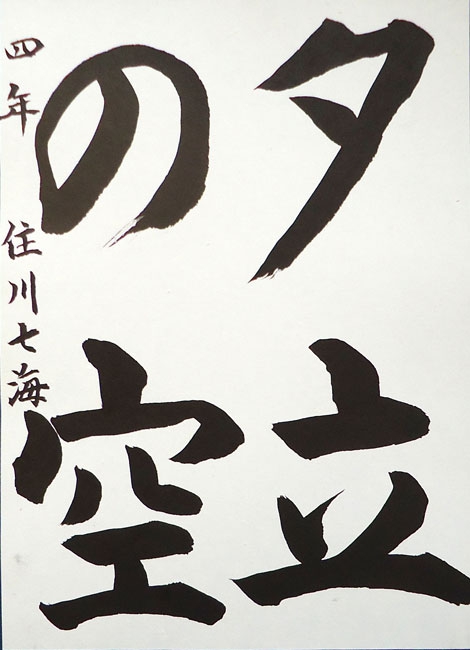 夕立
の空
四年 住川七海